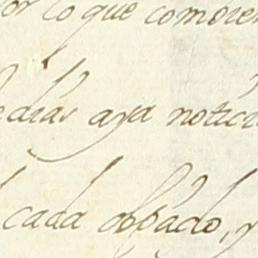 por lo que comore
edias aya notici
cada obpado, y